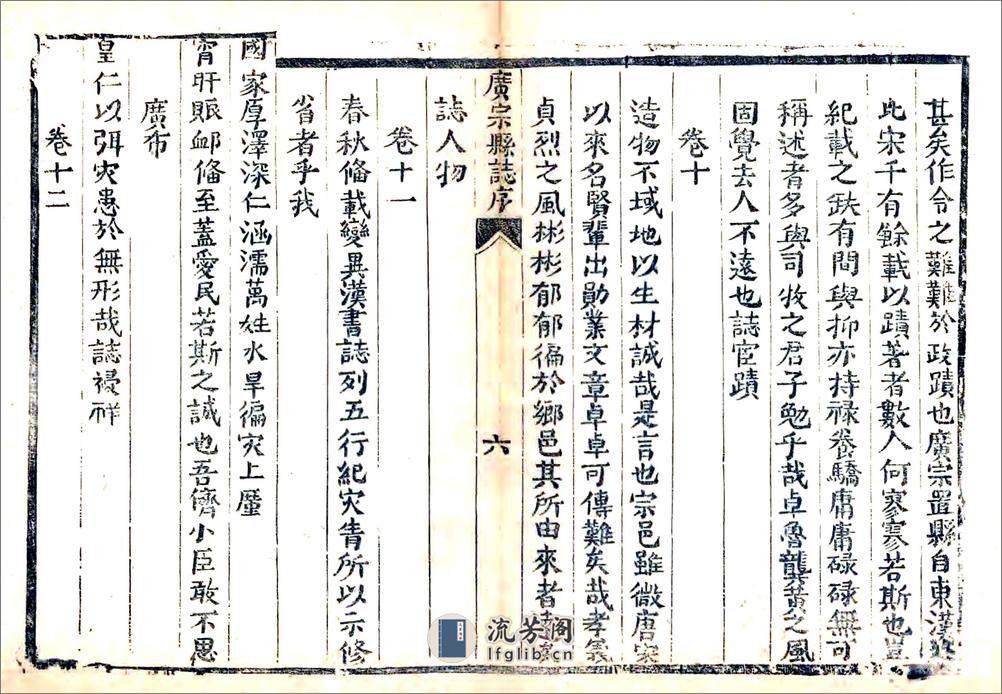 甚矣作令之難難於政蹟也廣宗置縣自東漢
此宋千有餘載以蹟著者數人何寥寥若斯也豈
紀載之缺有間與抑亦持祿養驕庸庸碌碌無可
稱述者多與司牧之君子勉乎哉卓魯龔黃之風
固覺去人不遠也誌宦蹟
卷十
造物不域地以生材誠哉是言也宗邑雖微唐宋
以來名賢輩出勛業文章卓卓可傳難矣哉孝義
貞烈之風彬彬郁郁徧於鄉邑其所由來者
誌人物
廣宗縣誌序
六
卷十一
春秋俻載變異漢書誌列五行紀灾眚所以示修
省者乎我
國家厚澤深仁涵濡萬姓水旱徧灾上厪
宵旰賑卹俻至蓋愛民若斯之誠也吾儕小臣敢不思
廣布
皇仁以弭灾患於無形哉誌祲祥
卷十二
流芳阁
lfglib.cn